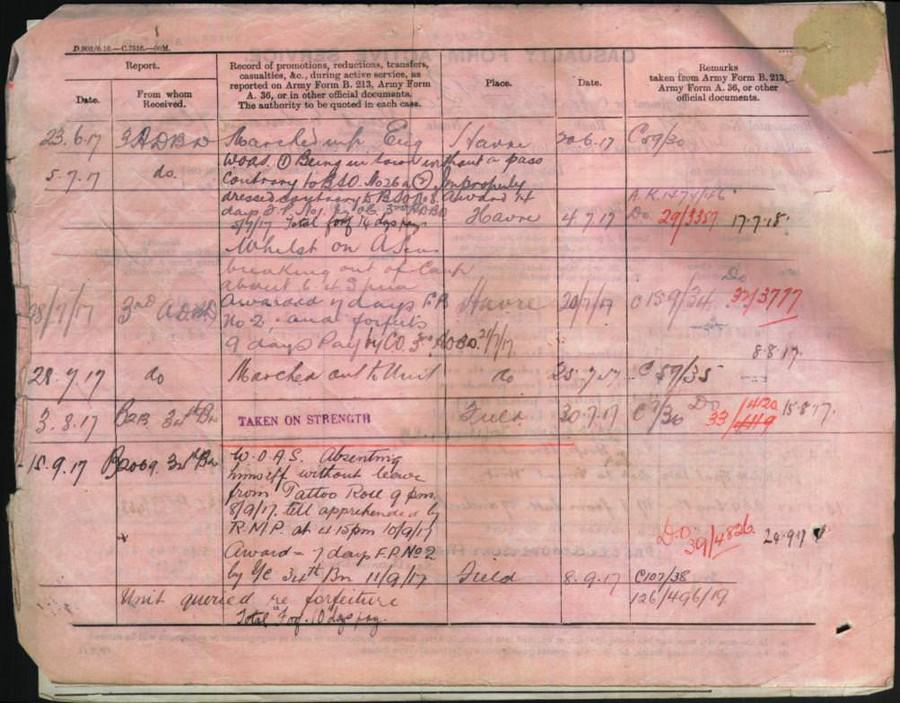 D.902/6.16.—C.7516.—60M.
Report.
Date.
From whom
Received.
Record of promotions, reductions, transfers,
casualties, &c., during active service, as
reported on Army Form B. 213, Army Form
A. 36, or in other official documents.
The authority to be quoted in each case.
Place.
Date.
Remarks
taken from Army Form B. 213,
Army Form A. 36, or other
official documents.
23.6.17 3 ADBD Marched in fr Eng Havre 20.6.17 C59/30
5.7.17 do. WOAS. (1) Being in town without a pass
contrary to BSO. No 26a (2) Improperly
dressed contrary to BSO No 8. Award 14
days F.P. No 1. 3rd ADBD
5/7/17 Total forf 14 days pay. Havre 4.7.17 Do. 29/3357 17.7.18.
Whilst on A.S.
breaking out of Camp
about 6.45 pm
28/7/17 3rd ADBD Awarded 7 days F.P. Havre 20/7/17 C159/34 Do 32/3777
No 2. and forfeits
9 days Pay by CO. 3rd ADBD. 21/7/17
8.8.17.
28.7.17 do Marched out to Unit do 25.7.17 C59/35
3.8.17 B213 34th Bn TAKEN ON STRENGTH Field 30.7.17 C7/36 Do 33/4419 4420 15.8.17.
15.9.17 B2069 34th Bn W.O.A.S. Absenting
himself without leave
from Tattoo Roll 9 pm.
8/9/17. till apprehended by
R.M.P. at 4.15pm 10/9/17
Award – 7 days F.P. No 2 D.O. 39/4826. 24.9.17
by 34th Bn 11/9/17 Field 8.9.17 C107/38
Unit queried re forfeiture 126/496/19
Total Forf. 10 days pay.